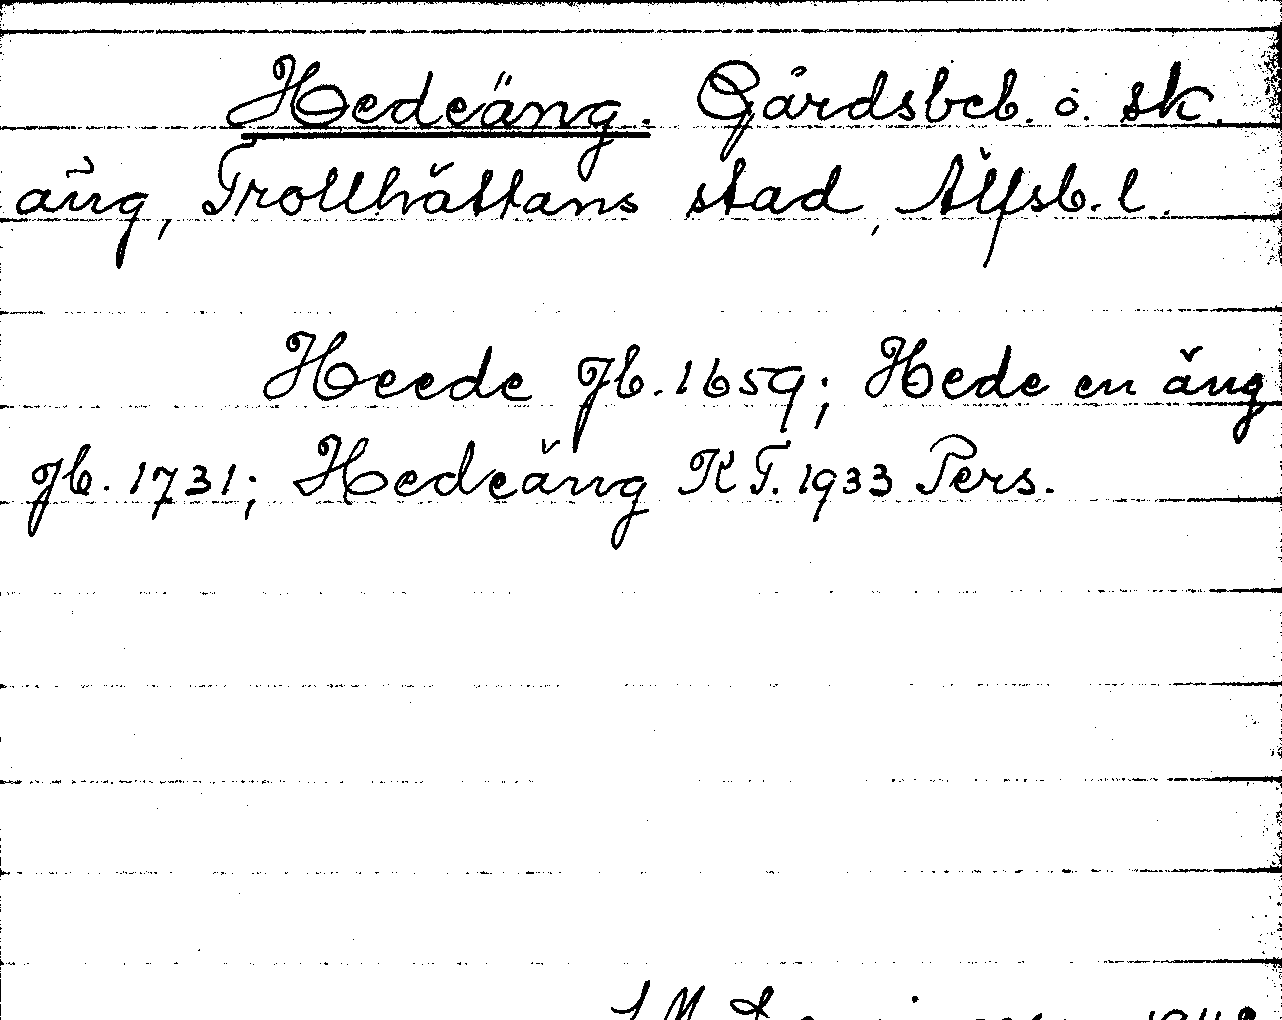 Hedeäng. Gårdsbeb. o. sk.
äng, Trollhättans stad, Älfsb. l.
Heede Jb. 1659; Hede en äng
Jb. 1731; Hedeäng KT. 1933 Pers.